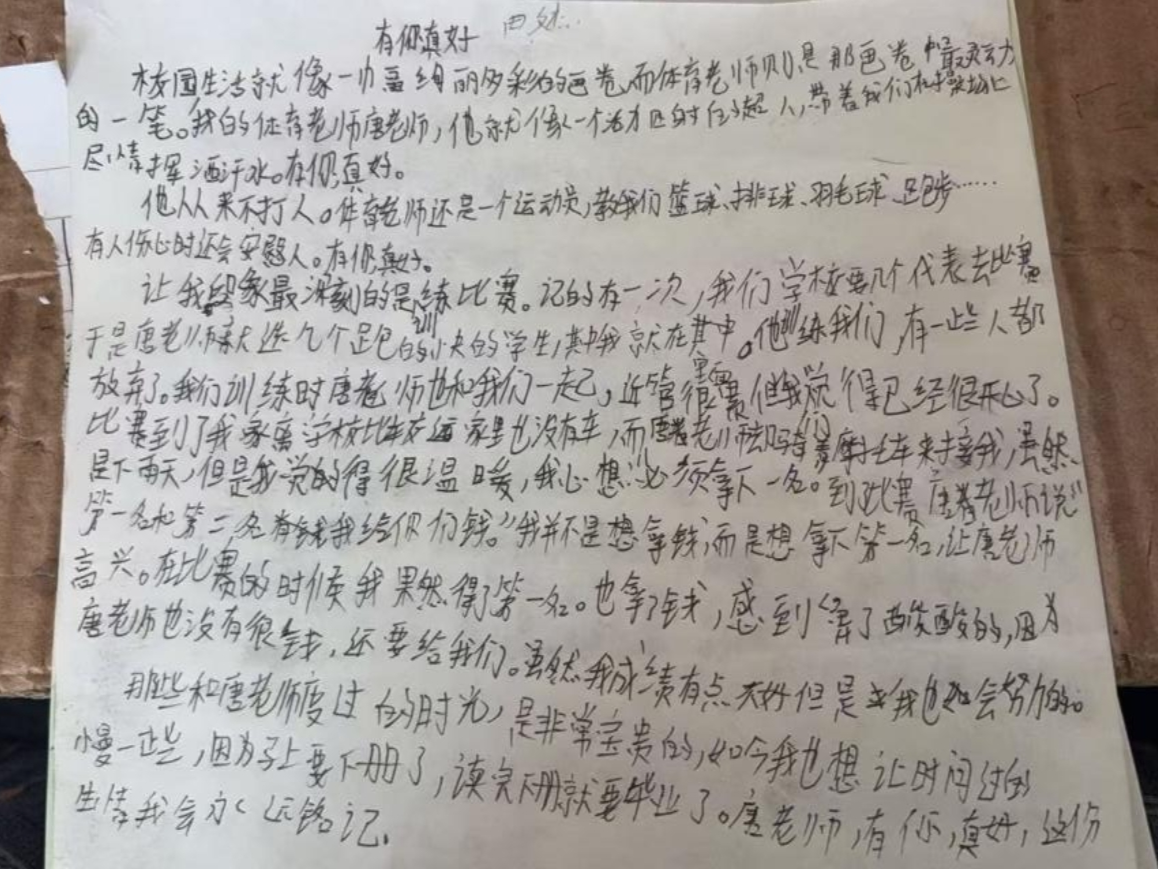 有你真好
校园生活就像一巾畐绚丽多彩的画卷,而体育老师则是那画卷中最灵动力
的一笔。我的体育老师唐老师,他就像一个活力四射的超人,带着我们在操场上
尽情挥洒汗水。有你真好。
他从来不打人。体育老师还是一个运动员,教我们篮球、排球、羽毛球、足包步……
有人伤心时还会安慰人。有你真好。
让我印象最深刻的是训练比赛。记的有一次,我们学校要几个代表去比赛
于是唐老师就选几个足包的快的学生,其中我就在其中。他训练我们,有一些人都
放弃了。我们训练时唐老师也和我们一起,近管很累但我觉得已经很开心了。
比赛到了我家离学校比较远家里也没有车,而唐老师骑着摩托车来接我,虽然
是下雨天,但是我觉的得很温暖,我心想必须拿下一名。到比赛唐老师说“
第一名和第二名有钱我给你们钱”我并不是想拿钱,而是想拿下第一名,让唐老师
高兴。在比赛的时候我果然得了第一名。也拿了钱,感到鼻子酸酸的,因为
唐老师也没有很钱,还要给我们。虽然我成绩有点不好但是我也会努力的。
那些和唐老师度过的时光,是非常宝贵的,如今我也想让时间过的
慢一些,因为马上要下册了,读完下册就要毕业了。唐老师,有你,真好,这份
情我会永远铭记.